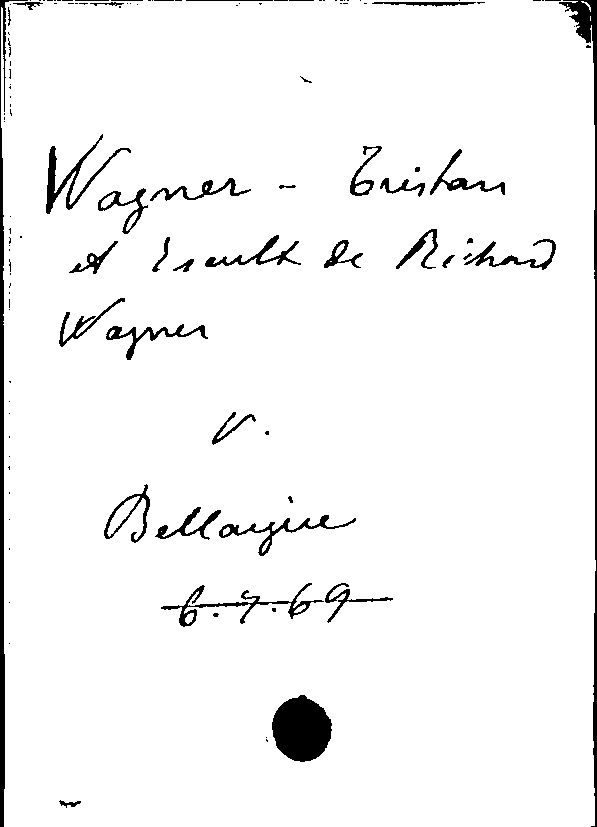 Wagner - Tristan
et Iseult de Richard
Wagner
V.
Bellaigue
6.7.69